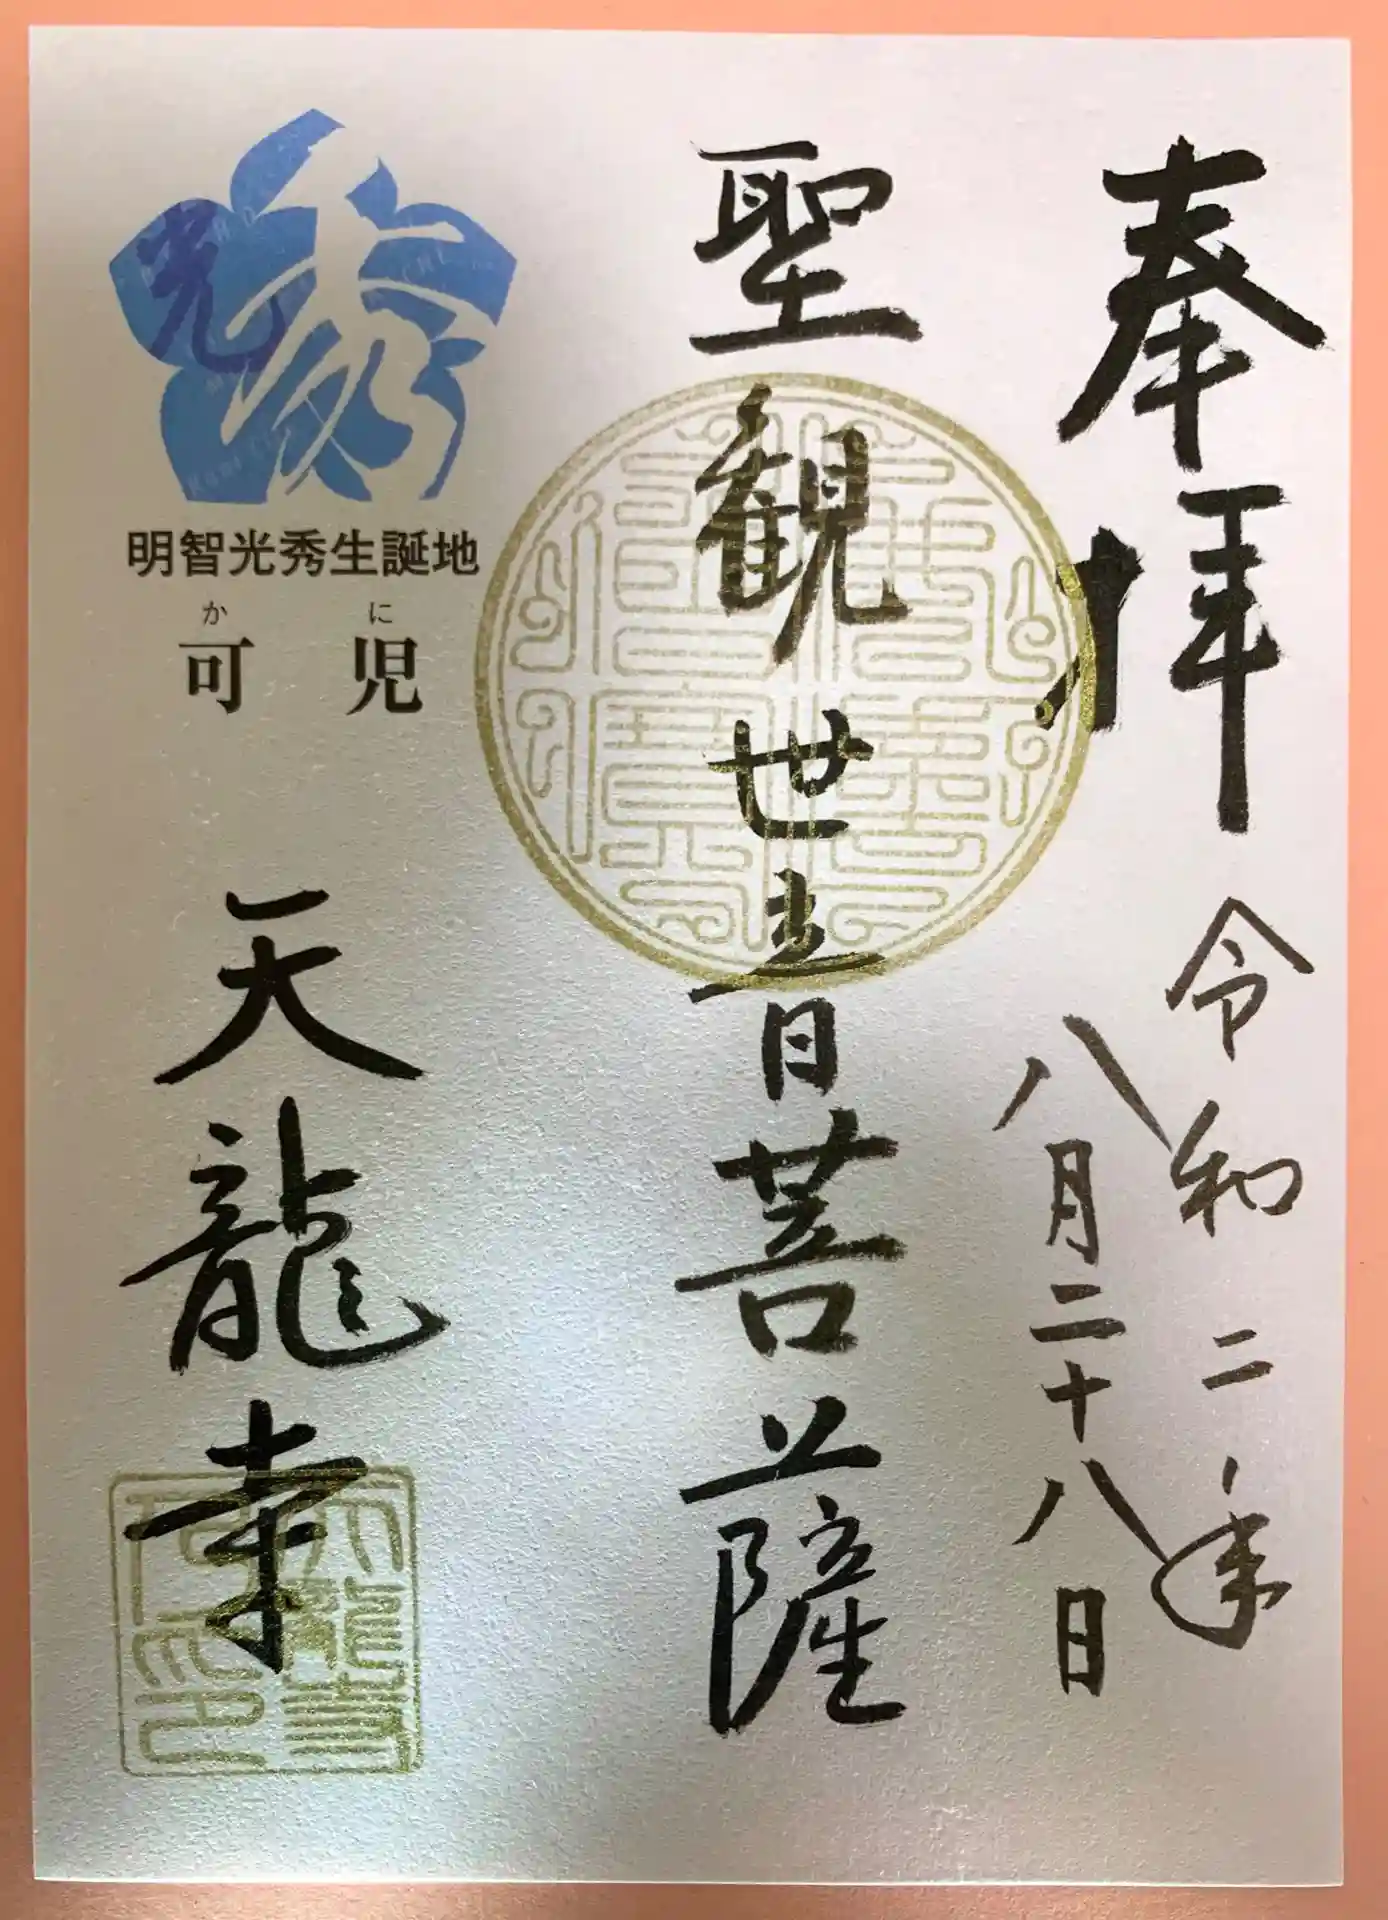 奉拝
令和二年
八月二十八日
聖観世音菩薩
光秀
明智光秀生誕地
かに
可児
天龍寺